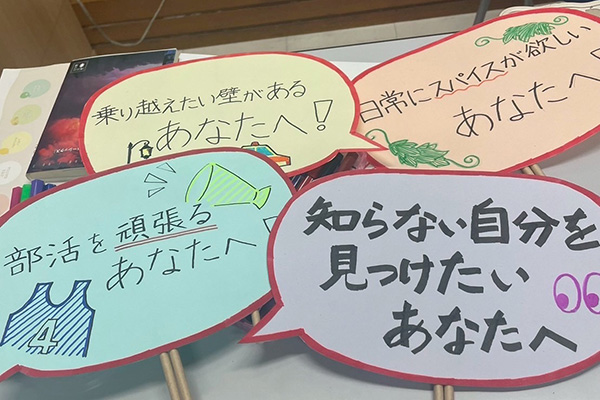 乗り越えたい壁がある
あなたへ!
日常にスパイスが欲しい
あなたへ
部活を頑張る
あなたへ
4
知らない自分を
見つけたい
あなたへ